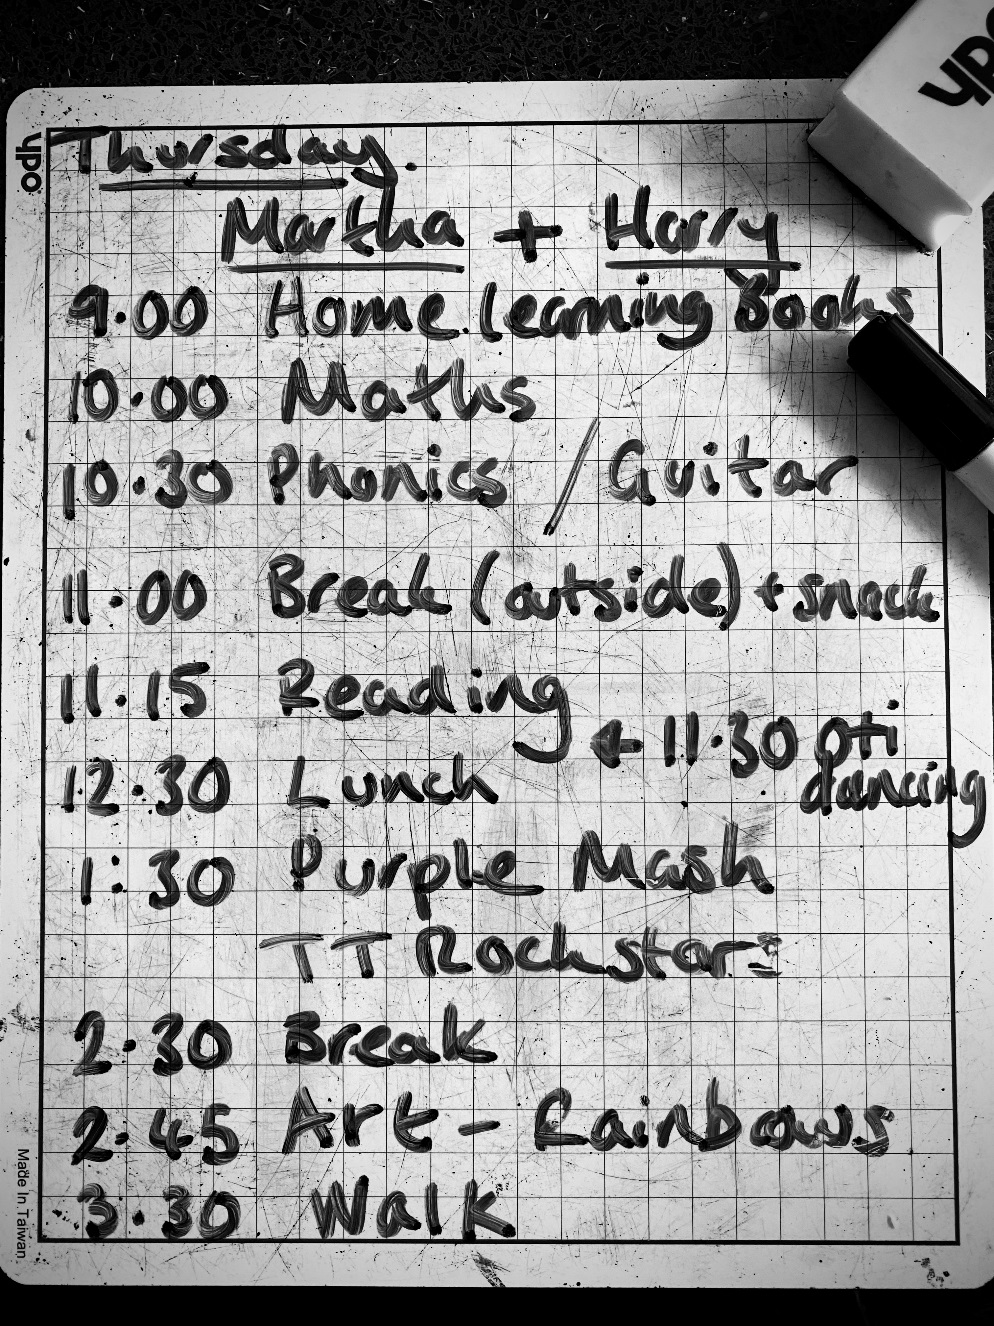 ypo
ypo
Thursday.
Martha + Harry
9.00 Home learning Books
10.00 Maths
10.30 Phonics / Guitar
11.00 Break (outside) + snack
11.15 Reading
← 11.30 Oti
dancing
12.30 Lunch
1:30 Purple Mash
TT Rockstars
2.30 Break
2.45 Art - Rainbows
3.30 Walk
Made In Taiwan